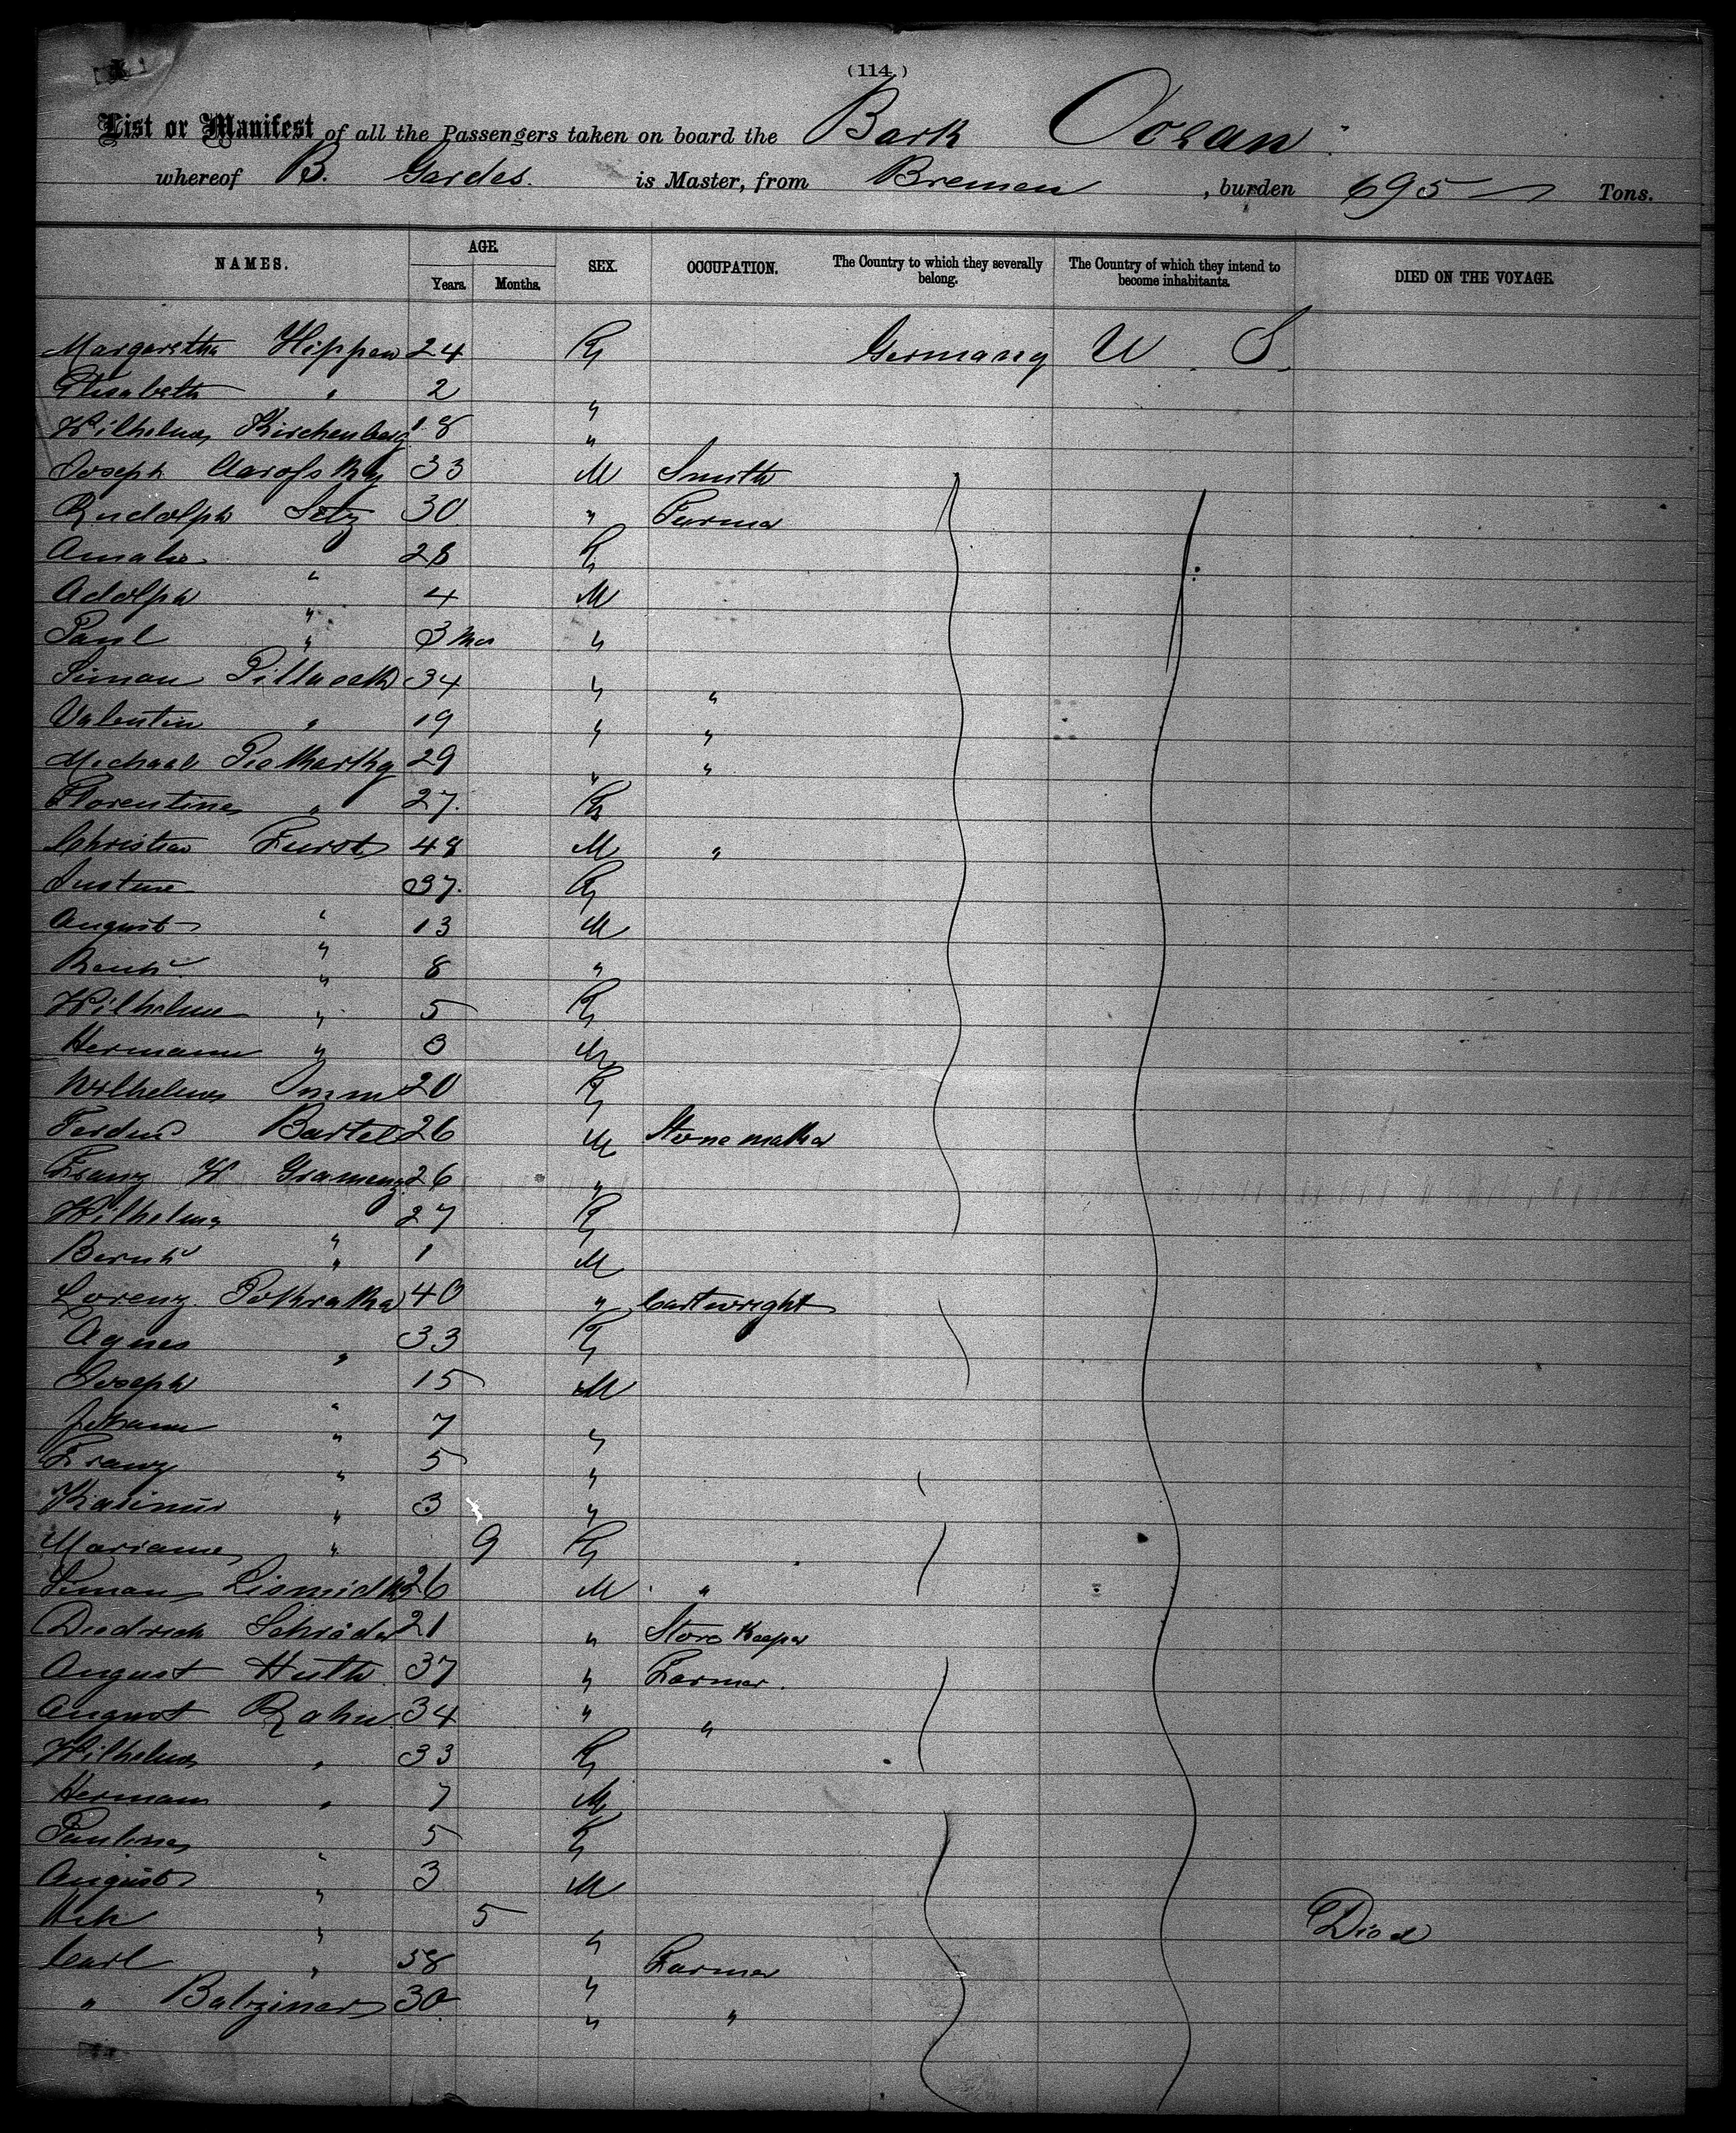 (114.)
List or Manifest of all the Passengers taken on board the Bark Ocean
whereof B. Gardes. is Master, from Bremen, burden 695 Tons.
NAMES. AGE. Years. Months. SEX. OCCUPATION. The Country to which they severally belong. The Country of which they intend to become inhabitants. DIED ON THE VOYAGE.
Margaretha Hippen 24 F Germany U. S.
Elisabeth " 2 "
Wilhelma Kirchenberg 18 "
Joseph 33 M Smith
Rudolph 30 " Farmer
Amalie " 28 F
Adolph " 4 M
Paul " 3 Mos "
Simon 34 " "
Valentin " 19 " "
Michael 29 " "
Florentine " 27. F
Christian Furst 48 M "
Justine 37. F
August " 13 M
" 8 "
Wilhelme " 5 F
Hermann " 3 M
Wilhelma 20 F
Ferdind Bartel 26 M
Franz W Gramenz 26 "
Wilhelma " 27 F
Bernhd " 1 M
Lorenz 40 " Cartwright
Agnes " 33 F
Joseph " 15 M
Johann " 7 "
Franz " 5 "
Kasimir " 3 "
Mariane " 9 F
Simon 26 M "
Diedrich Schröder 21 " Store Keeper
August Huth 37 " Farmer.
August Rahn 34 " "
Wilhelma " 33 F
Hermann " 7 M
Pauline " 5 F
August " 3 M
" 5 " Died
Carl " 58 " Farmer
" 30 " "